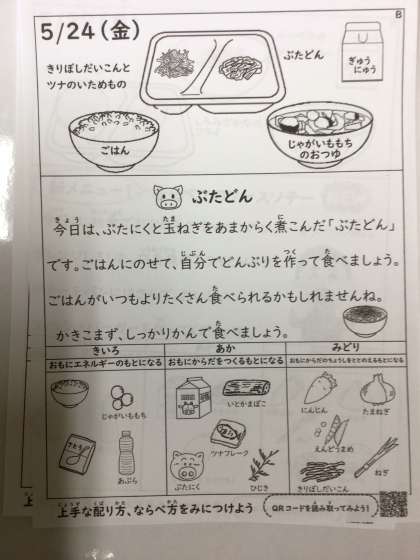 B
5/24(金)
きりぼしだいこんと
ツナのいためもの
ぶたどん
ぎゅう
にゅう
ごはん
じゃがいももち
のおつゆ
ぶたどん
きょう たま に
今日は、ぶたにくと玉ねぎをあまからく煮こんだ「ぶたどん」
じぶん つく た
です。ごはんにのせて、自分でどんぶりを作って食べましょう。
た
ごはんがいつもよりたくさん食べられるかもしれませんね。
た
かきこまず、しっかりかんで食べましょう。
きいろ
おもにエネルギーのもとになる
じゃがいももち
さとう
あぶら
あか
おもにからだをつくるもとになる
いとかまぼこ
ツナフレーク
ぶたにく
ひじき
みどり
おもにからだのちょうしをととのえるもとになる
にんじん
たまねぎ
えんどうまめ
きりぼしだいこん
ねぎ
じょうず くば かた かた
上手な配り方、ならべ方をみにつけよう
QRコードを読み取ってみよう!